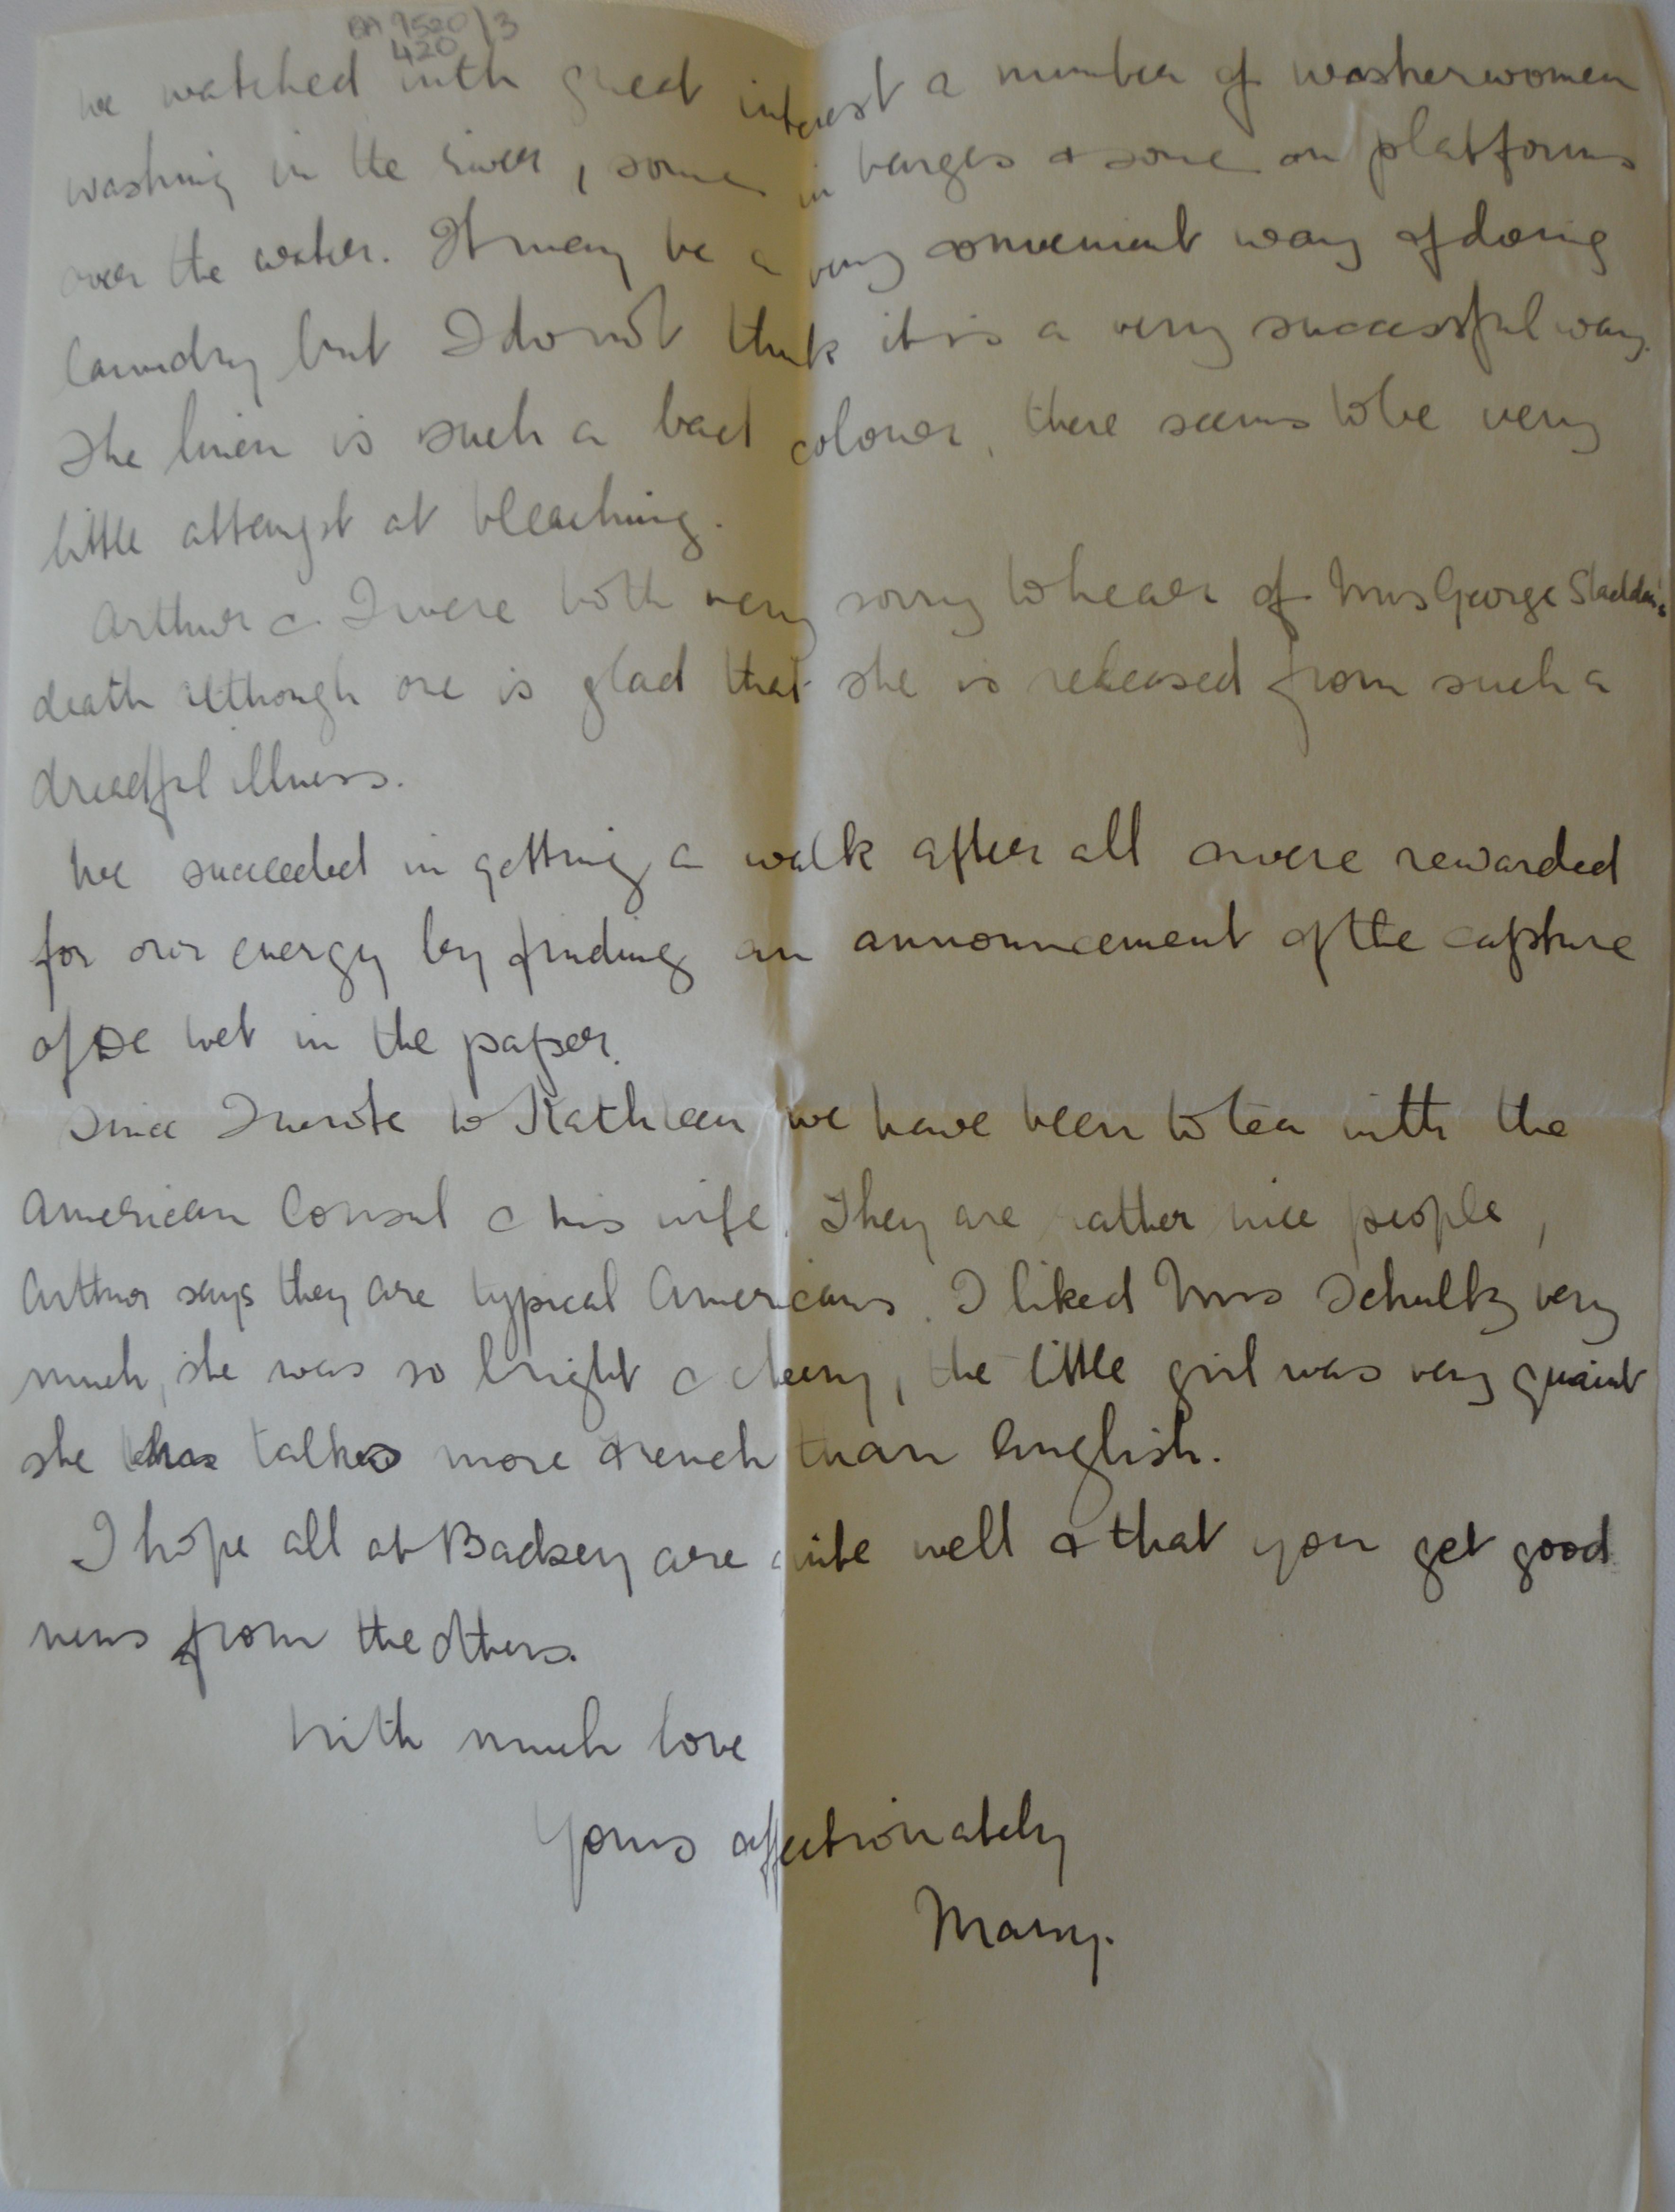 BA 9520/3
420
We watched with great interest a number of washerwomen
washing in the river, some in barges & some on platforms
over the water. It may be a very convenient way of doing
laundry but I do not think it is a very successful way.
The linen is such a bad colour, there seems to be very
little attempt at bleaching.
Arthur & I were both very sorry to hear of Mrs George Sladden's
death although one is glad that she is released from such a
dreadful illness.
We succeeded in getting a walk after all & were rewarded
for our energy by finding an announcement of the capture
of De Wet in the paper.
Since I wrote to Kathleen we have been to tea with the
American Consul & his wife. They are rather nice people,
Arthur says they are typical Americans. I liked Mrs Schultz very
much, she was so bright & cheery, the little girl was very quaint
she talks more French than English.
I hope all at Badsey are quite well & that you get good
news from the others.
With much love
Yours affectionately
Mary.